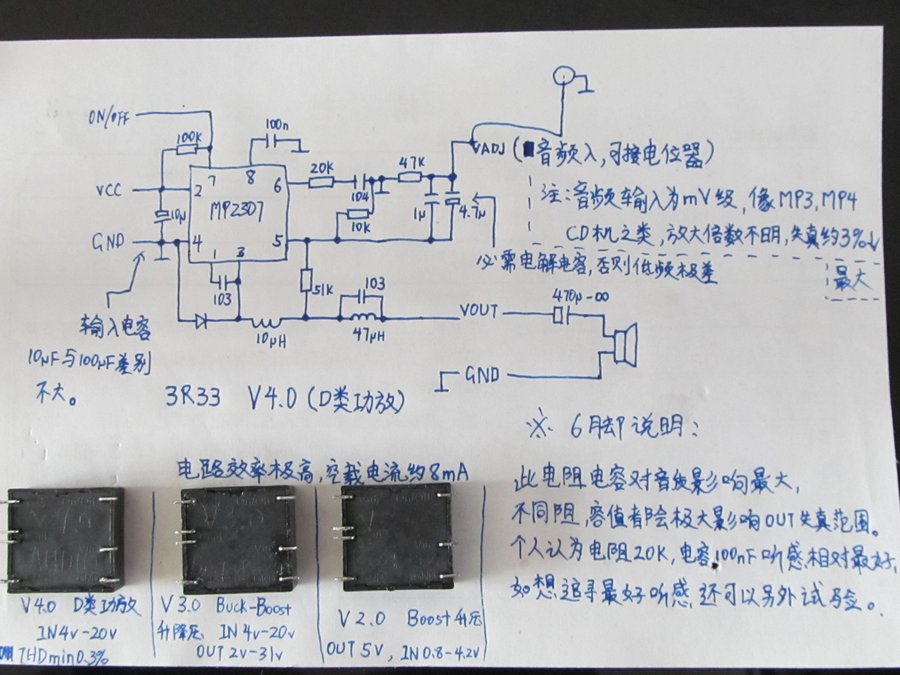 ON/OFF
100K
100n
VCC
2
7
8
6
MP2307
10μ
GND
4
1
3
5
103
20K
104
47K
10K
1μ
4.7μ
VADJ (音频入,可接电位器)
注:音频输入为mV级,像MP3,MP4
CD机之类,放大倍数不明,失真约3%↓
最大
必需电解电容,否则低频极差
51K
103
10μH
47μH
VOUT
470μ-∞
GND
输入电容
10μF与100μF差别
不大。
3R33 V4.0(D类功放)
※ 6脚说明:
此电阻电容对音质影响最大,
不同阻,容值者除极大影响OUT失真范围。
个人认为电阻20K,电容100nF听感相对最好,
如想追寻最好听感,还可以另外试验。
电路效率极高,空载电流约8mA
V4.0 D类功放
IN4v-20v
THDmin0.3%
V3.0 Buck-Boost
升降压 IN4v-20v
OUT2v-31v
V2.0 Boost升压
OUT5V,IN0.8-4.2v